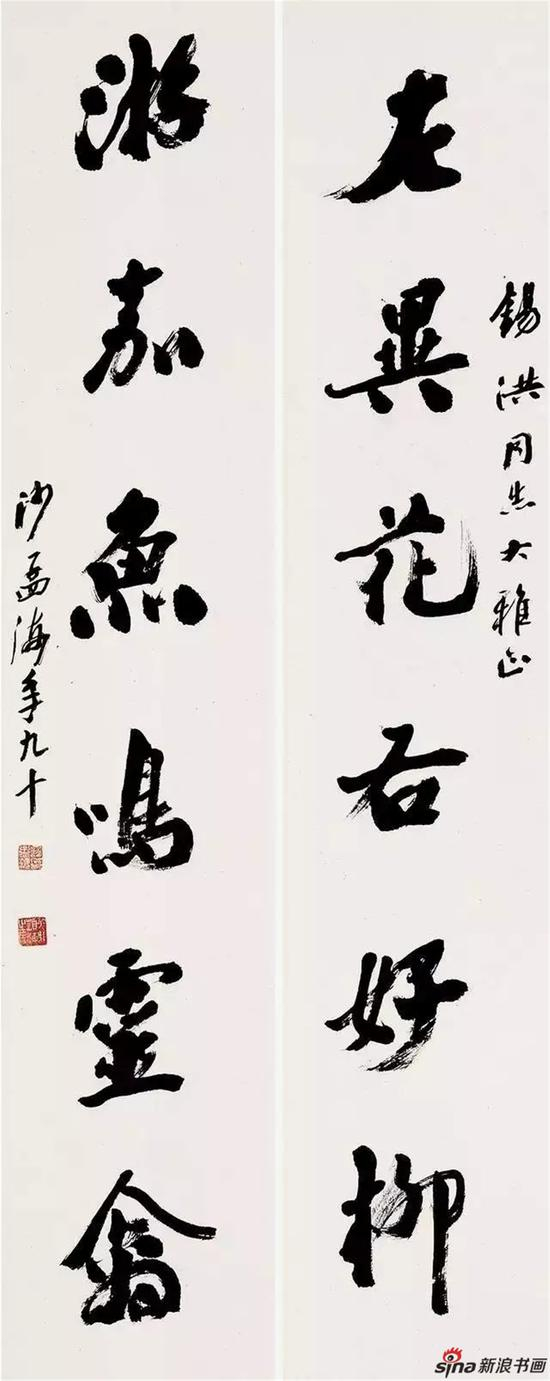 锡洪同志大雅正
左異花右好柳
游嘉魚鳴靈禽
沙孟海年九十
sina新浪书画